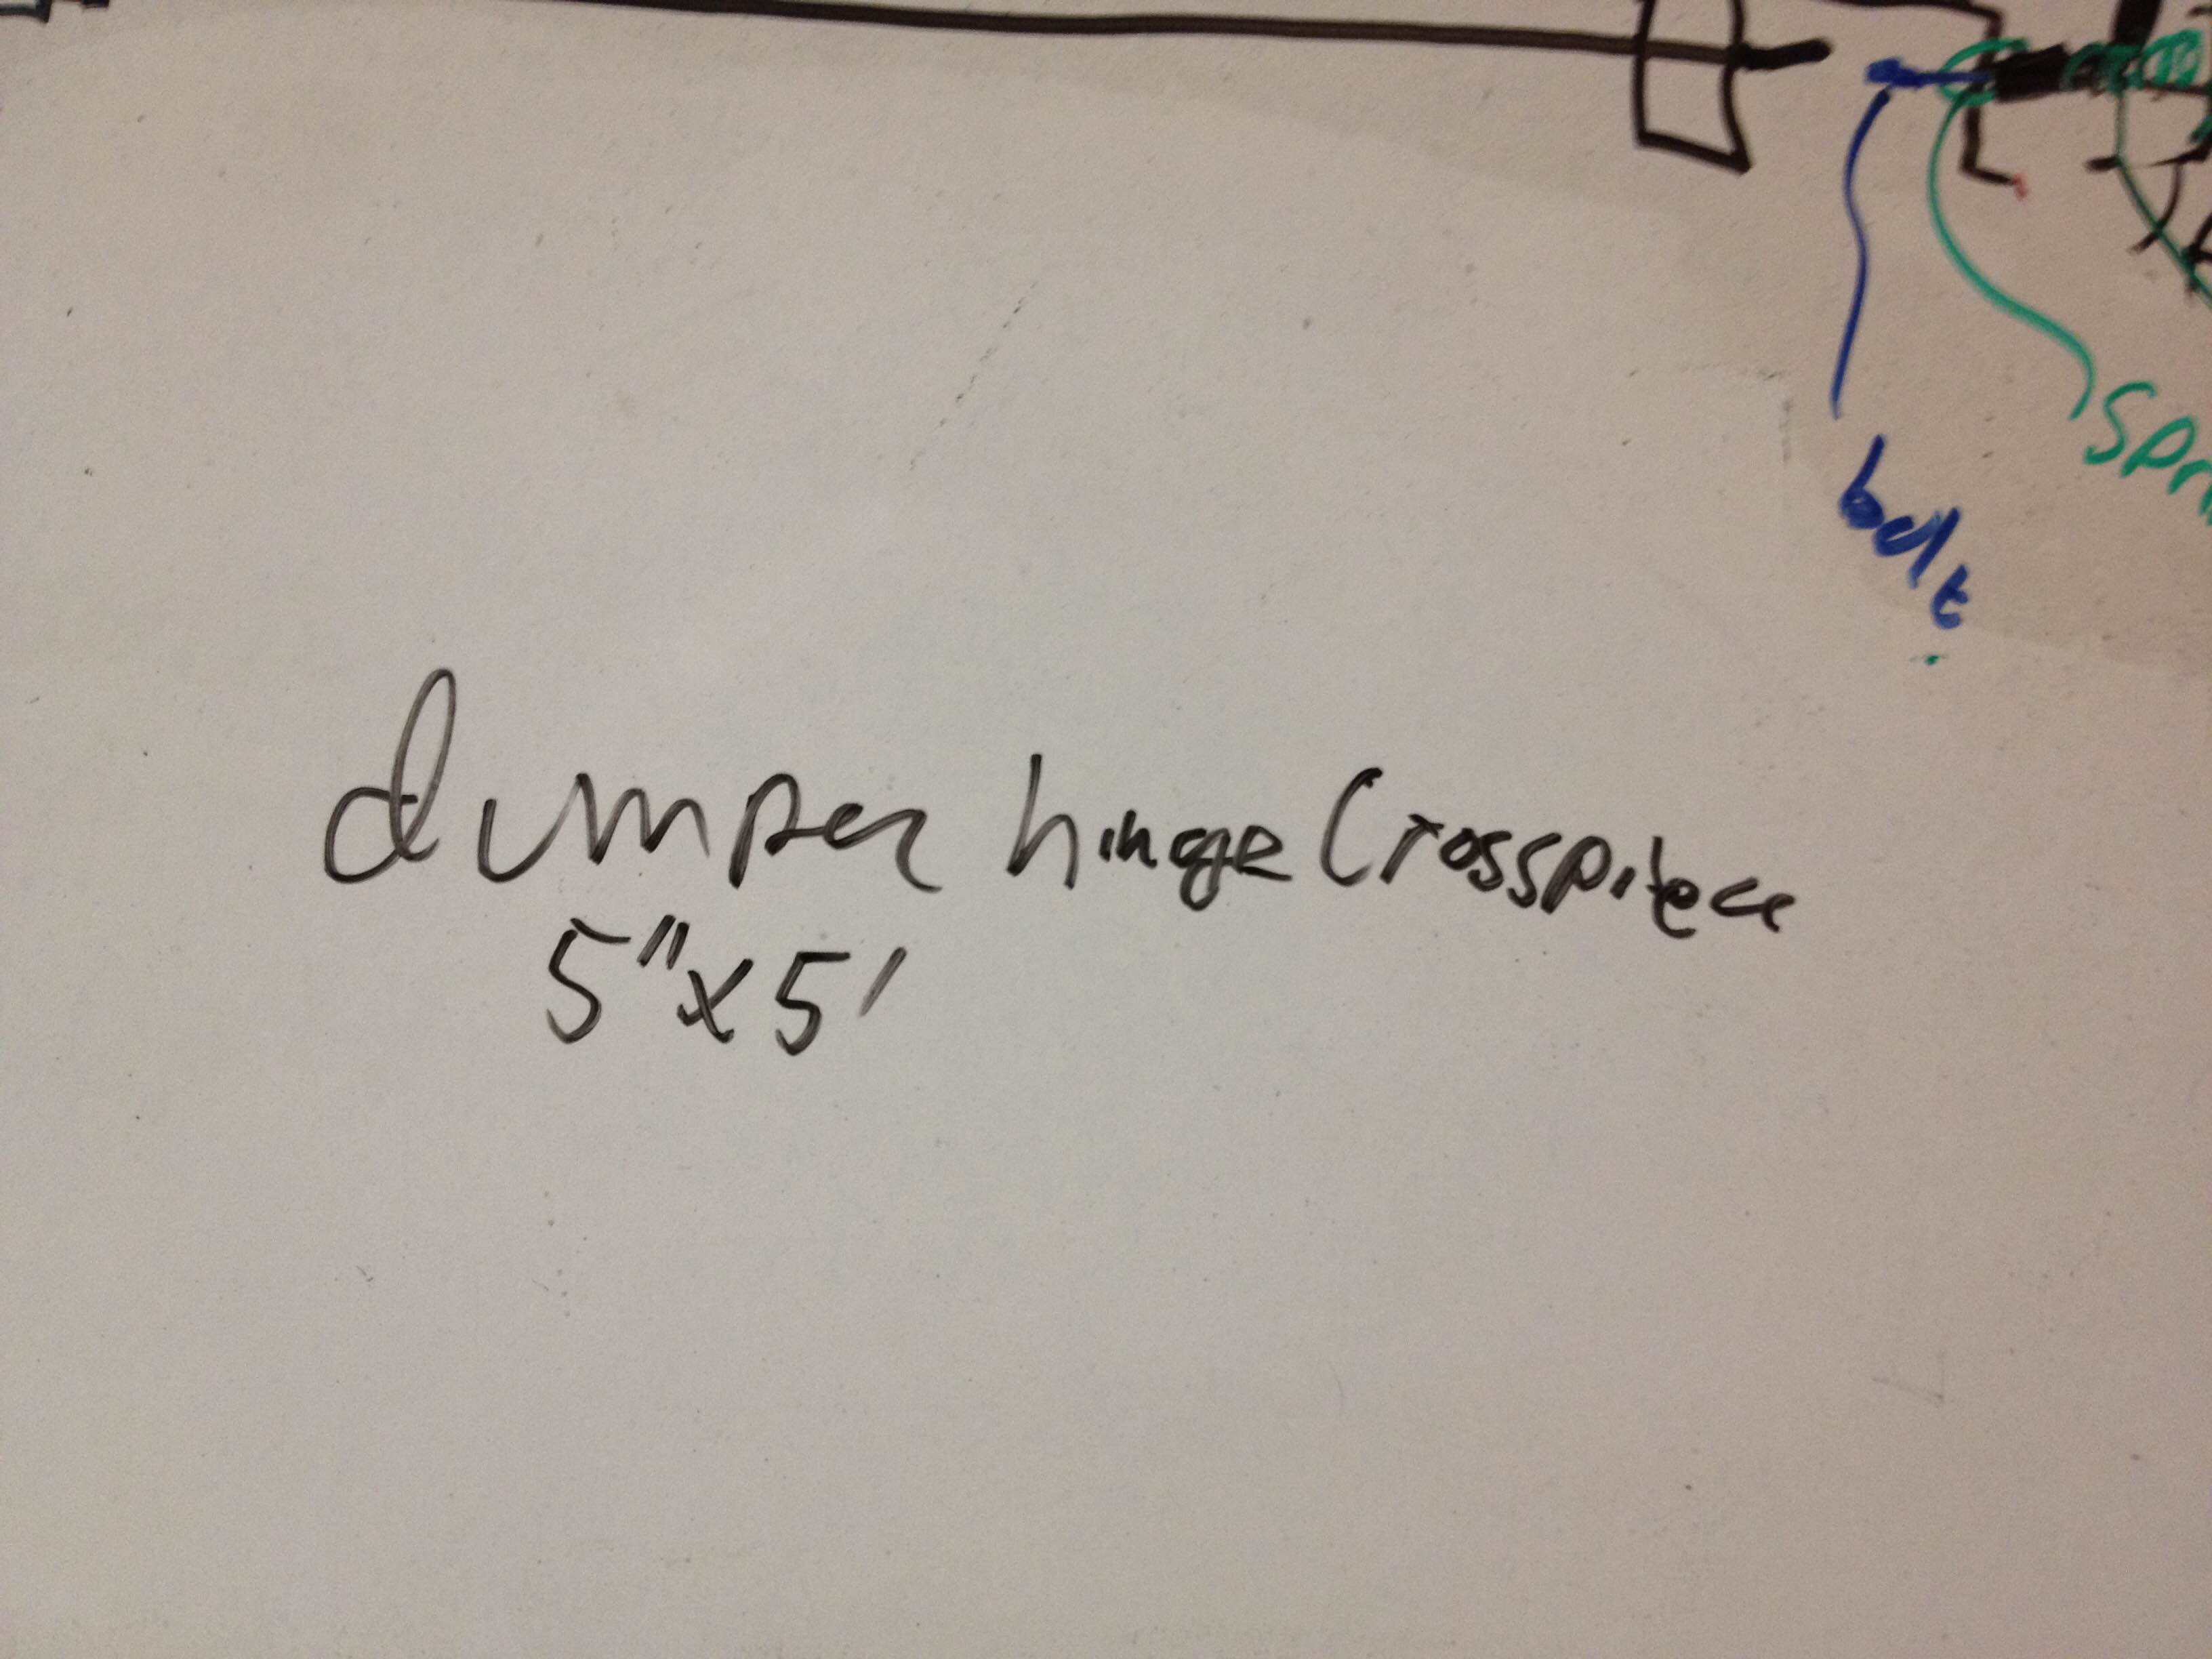 bolt
dumper hinge Crosspiece
5"x5'